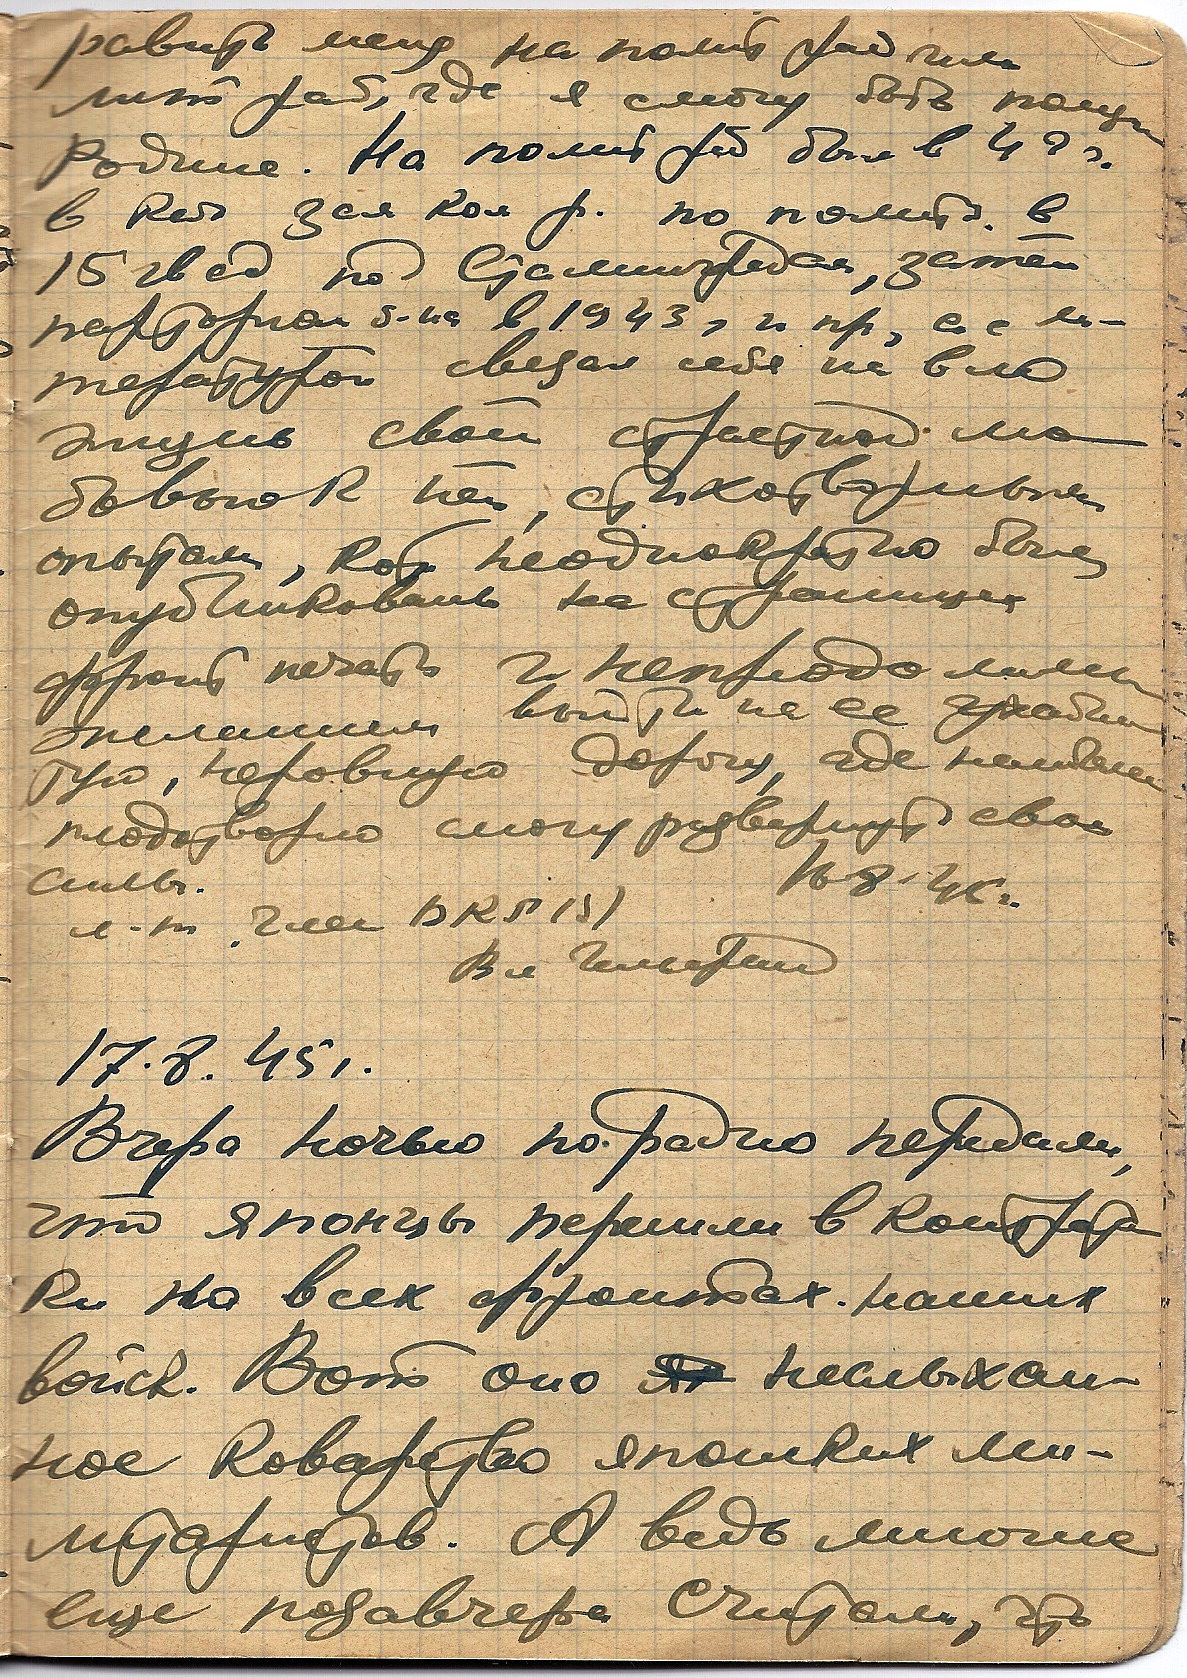 равить меня на полит раб или
лит раб, где я смогу быть полезн
Родине. На полит раб был в 42 г.
в кач зам ком р. по полит. в
15 гв сд под Сталинградом, затем
парторгом б-на в 1943, и пр, а с ли-
тературой связал себя на всю
жизнь своей страстной лю-
бовью к ней, стихотворными
опытами, кот неоднократно были
опубликованы на страницах
фронт печати и непреодолимым
желанием выйти на ее ухабис
тую, неровную дорогу, где наиболее
плодотворно смогу развернуть свои
силы.
л-т, член ВКП(б)
Вл Гельфанд
17.8.45г.
Вчера ночью по радио передали,
что японцы перешли в контрата
ки на всех фронтах наших
войск. Вот оно неслыхан-
ное коварство японских ми-
литаристов. А ведь многие
еще позавчера считали, что